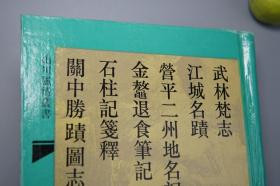 山川風情叢書
武林梵志
江城名蹟
營平二州地名記
金鰲退食筆記
石柱記箋釋
關中勝蹟圖志